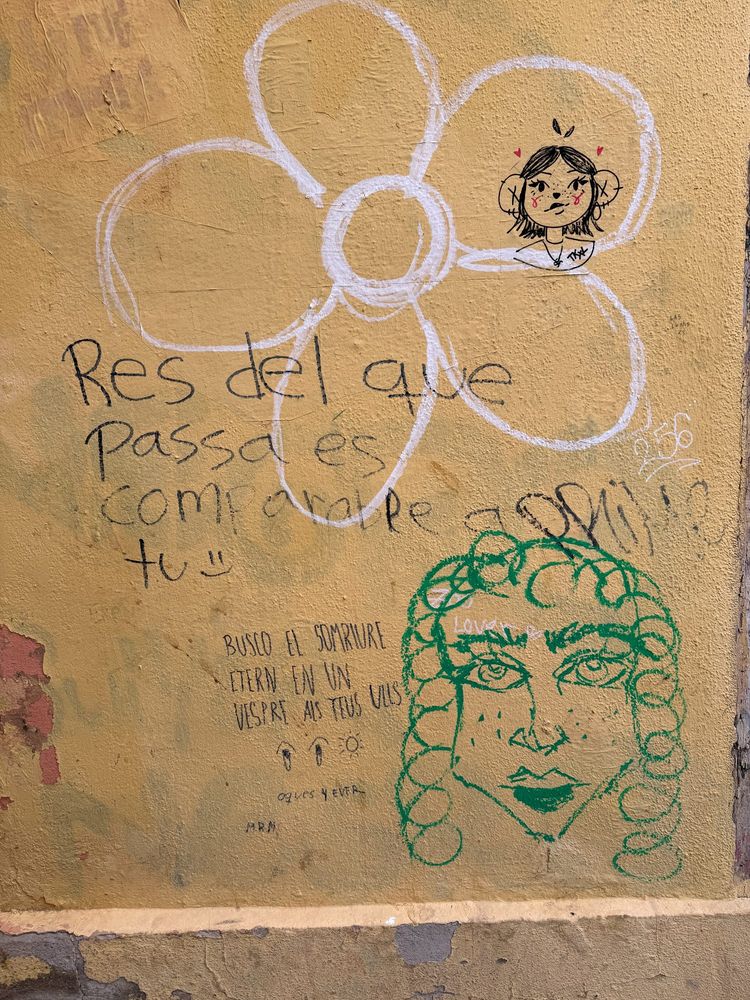 Res del que
passa és
comparable a
tu
256
Lover
BUSCO EL SOMRIURE
ETERN EN UN
VESPRE ALS TEUS ULLS
M.R.M